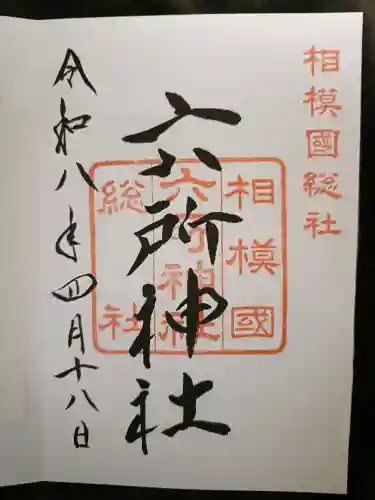 相模國総社
六所神社
相模國
六所神社
総社
令和八年四月十八日